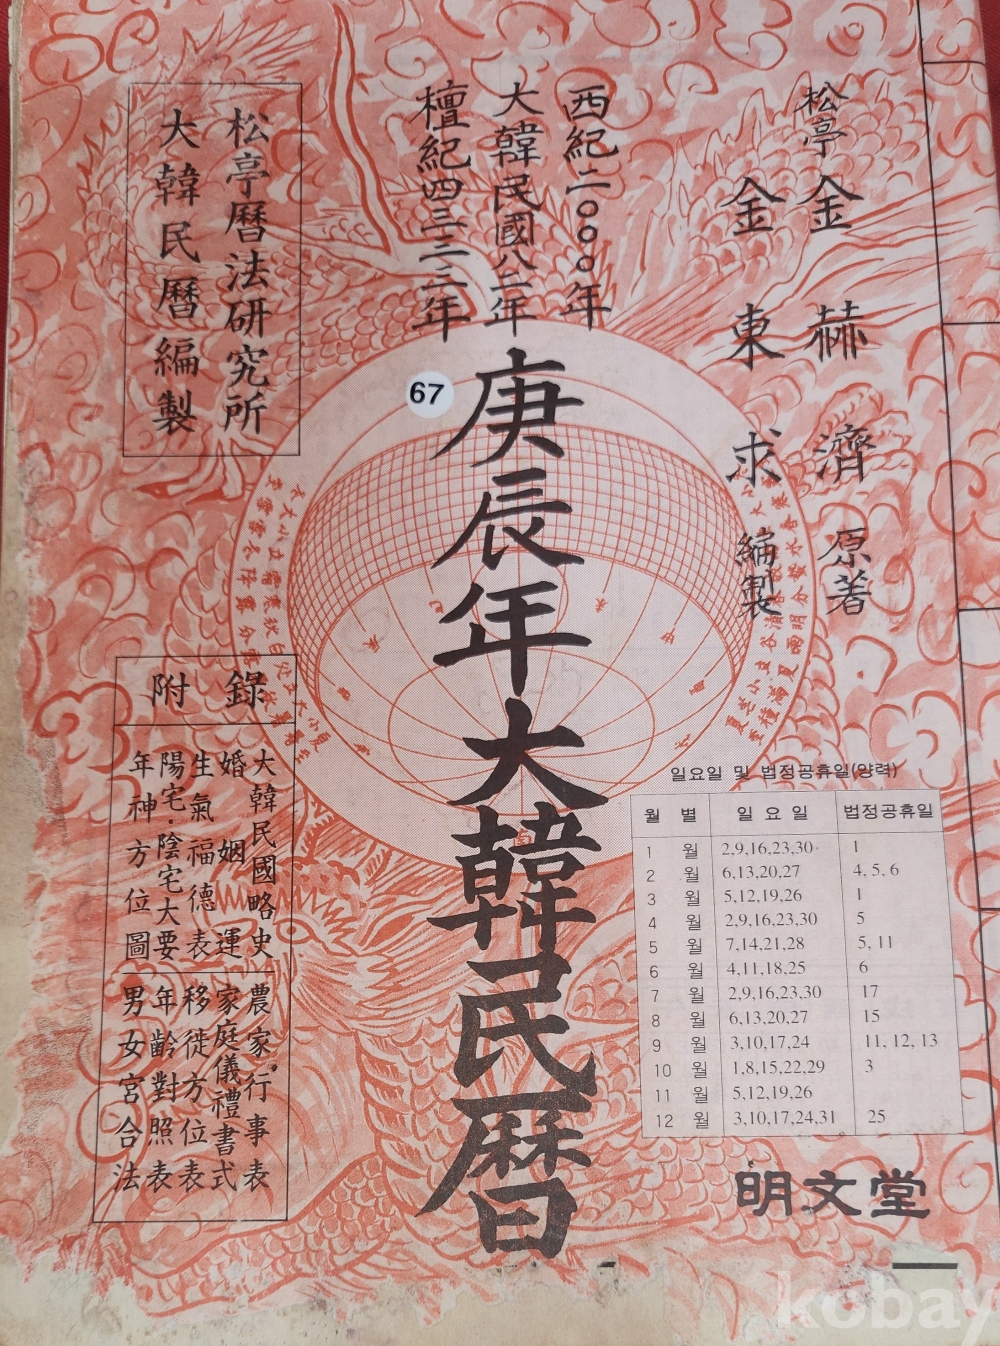 松亭 金赫濟 原著
金東求 編製
西紀二○○○年
大韓民國八二年
檀紀四三三三年
庚辰年大韓民曆
67
松亭曆法硏究所
大韓民曆編製
附錄
大韓民國略史
婚姻運
生氣福德表
陽宅·陰宅大要
年神方位圖
農家行事表
家庭儀禮書式
移徙方位表
年齡對照表
男女宮合法
일요일 및 법정공휴일(양력)
월 별 일 요 일 법정공휴일
1 월 2,9,16,23,30 1
2 월 6,13,20,27 4, 5, 6
3 월 5,12,19,26 1
4 월 2,9,16,23,30 5
5 월 7,14,21,28 5, 11
6 월 4,11,18,25 6
7 월 2,9,16,23,30 17
8 월 6,13,20,27 15
9 월 3,10,17,24 11, 12, 13
10 월 1,8,15,22,29 3
11 월 5,12,19,26
12 월 3,10,17,24,31 25
明文堂
kobay